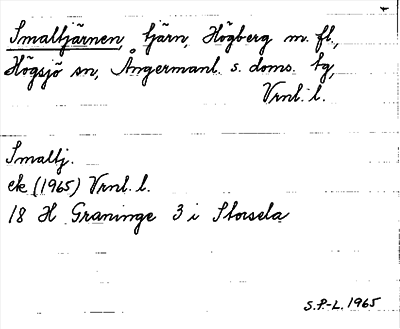 Smaltjärnen, tjärn, Högberg m. fl.,
Högsjö sn, Ångermanl. s. doms. tg,
Vrnl. l.
Smaltj.
ek (1965) Vrnl. l.
18 H Graninge 3 i Storsela
S.P.-L. 1965